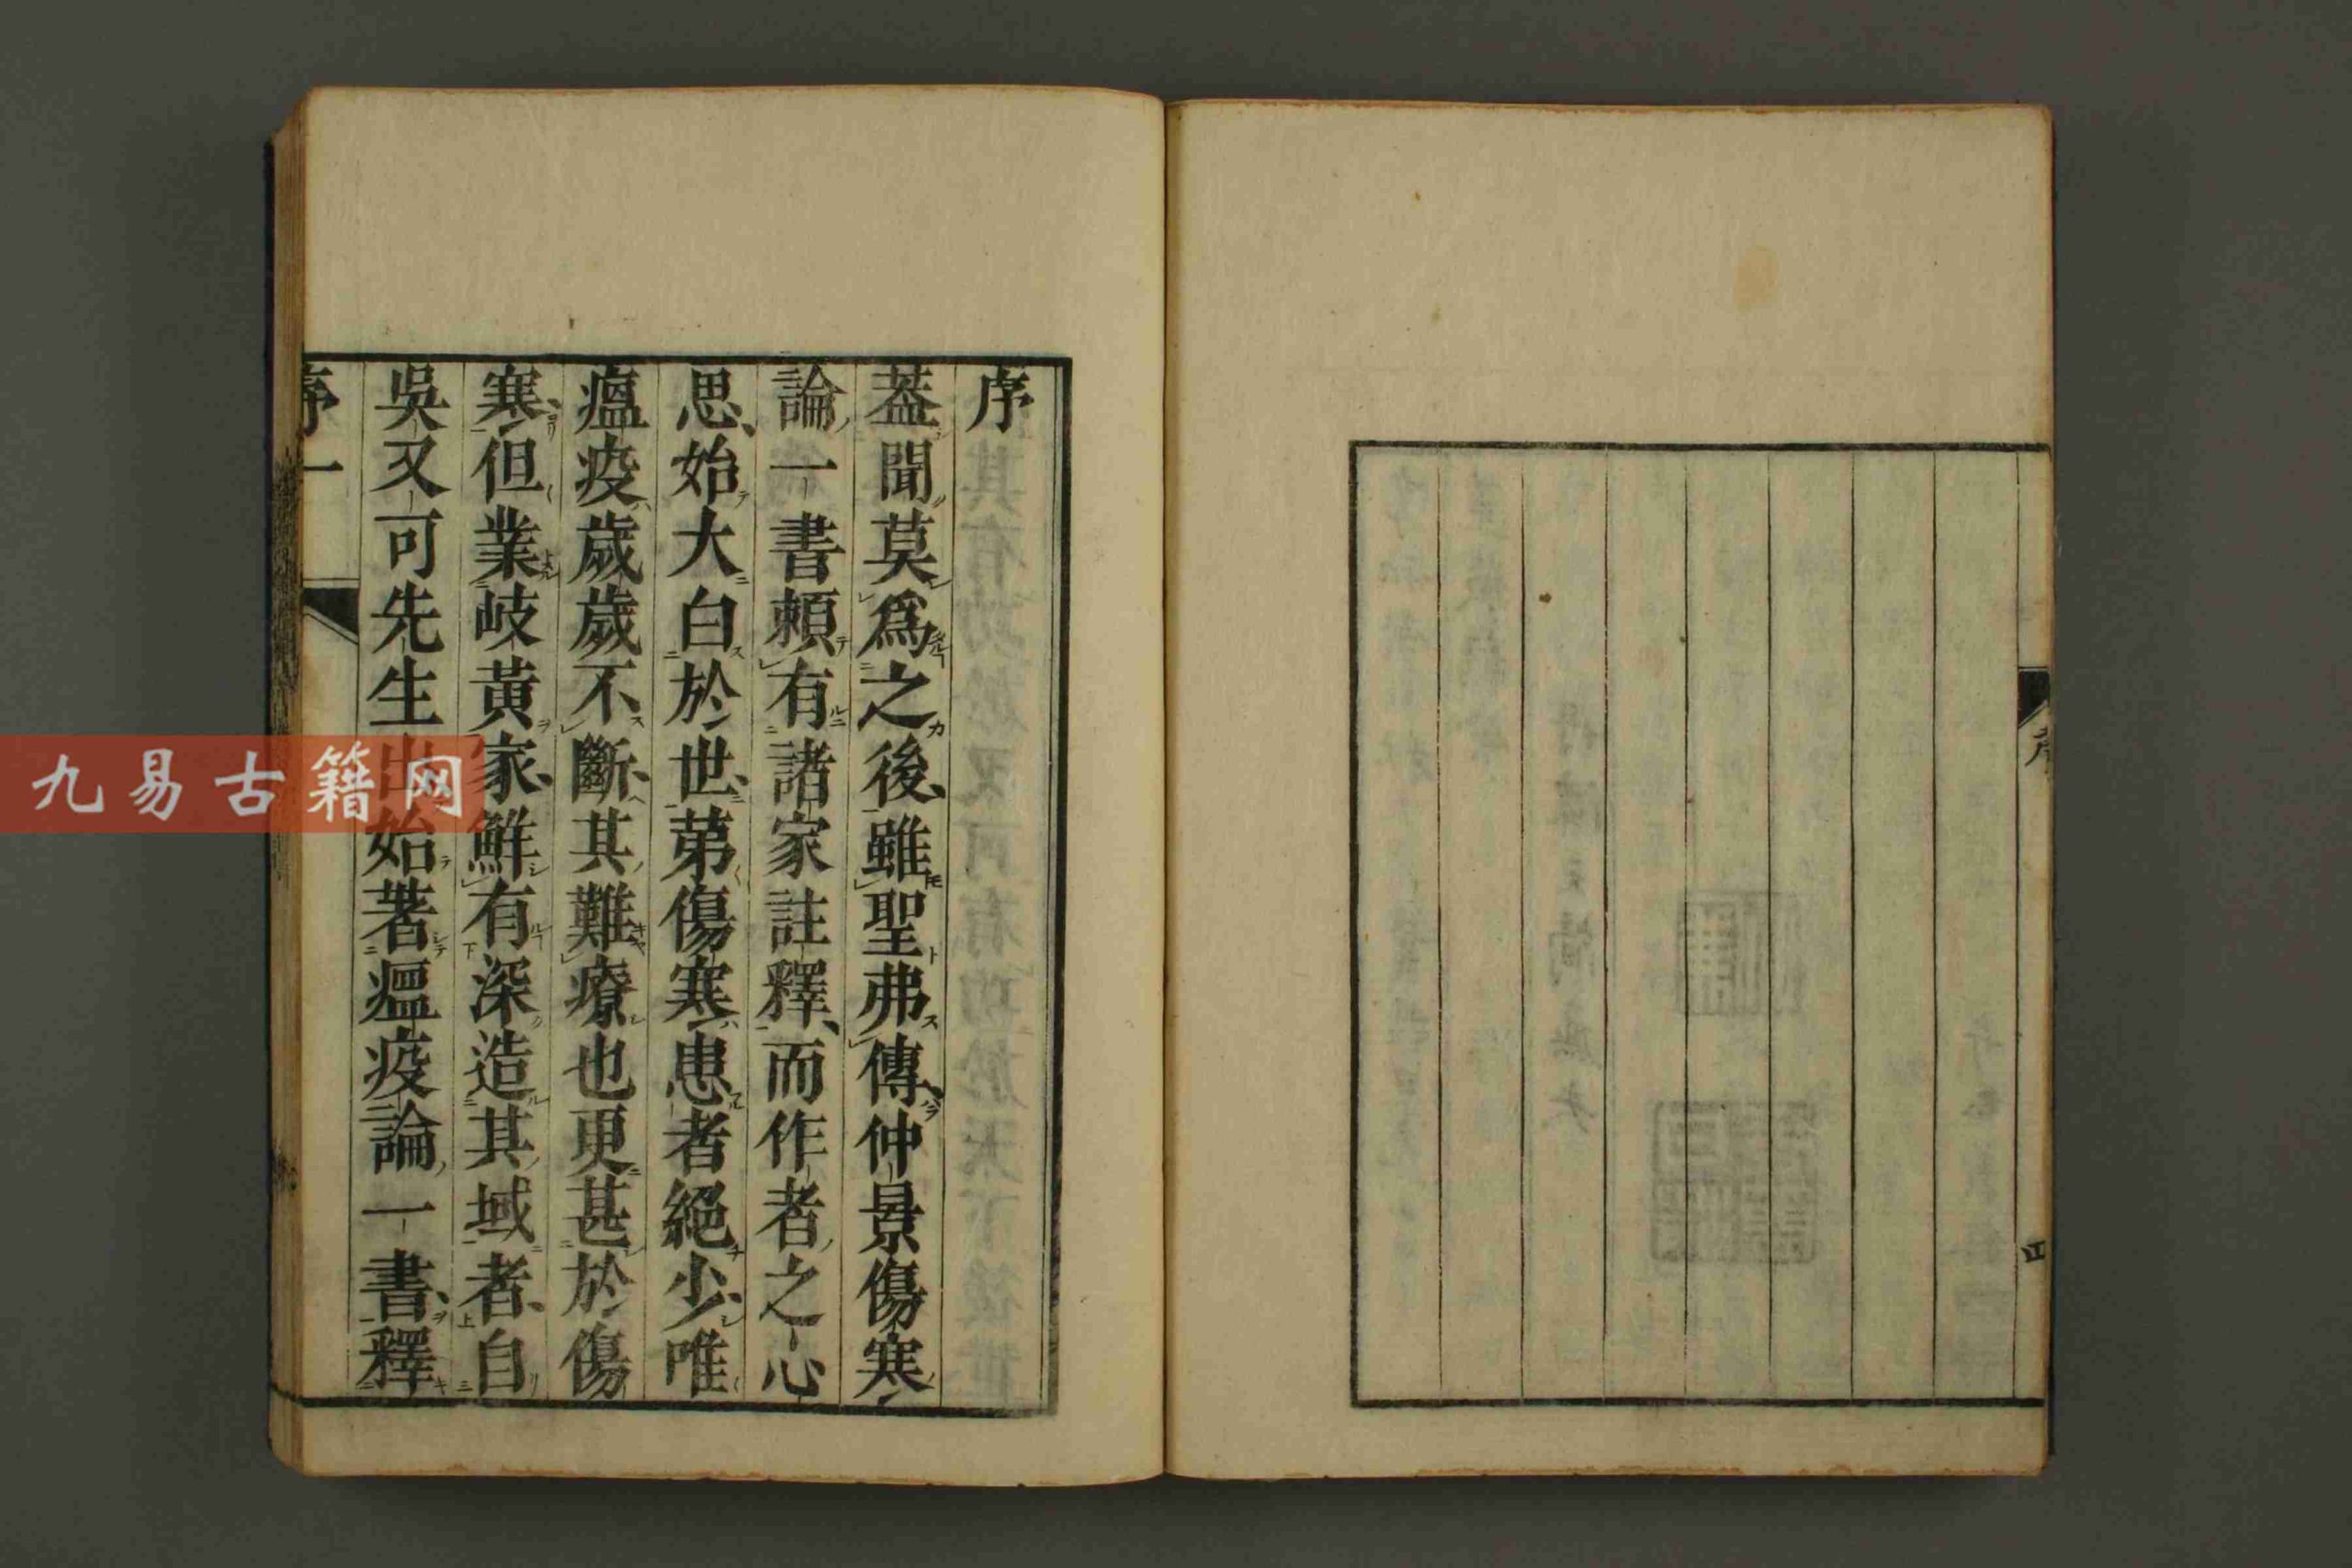 序
四
序
葢聞莫爲之後雖聖弗傳仲景傷寒
論一書頼有諸家註釋而作者之心
思始大白於世苐傷寒患者絕少唯
瘟疫歲歲不斷其難療也更甚於傷
寒但業岐黃家鮮有深造其域者自
吳又可先生出始著瘟疫論一書釋
序一
九易古籍网